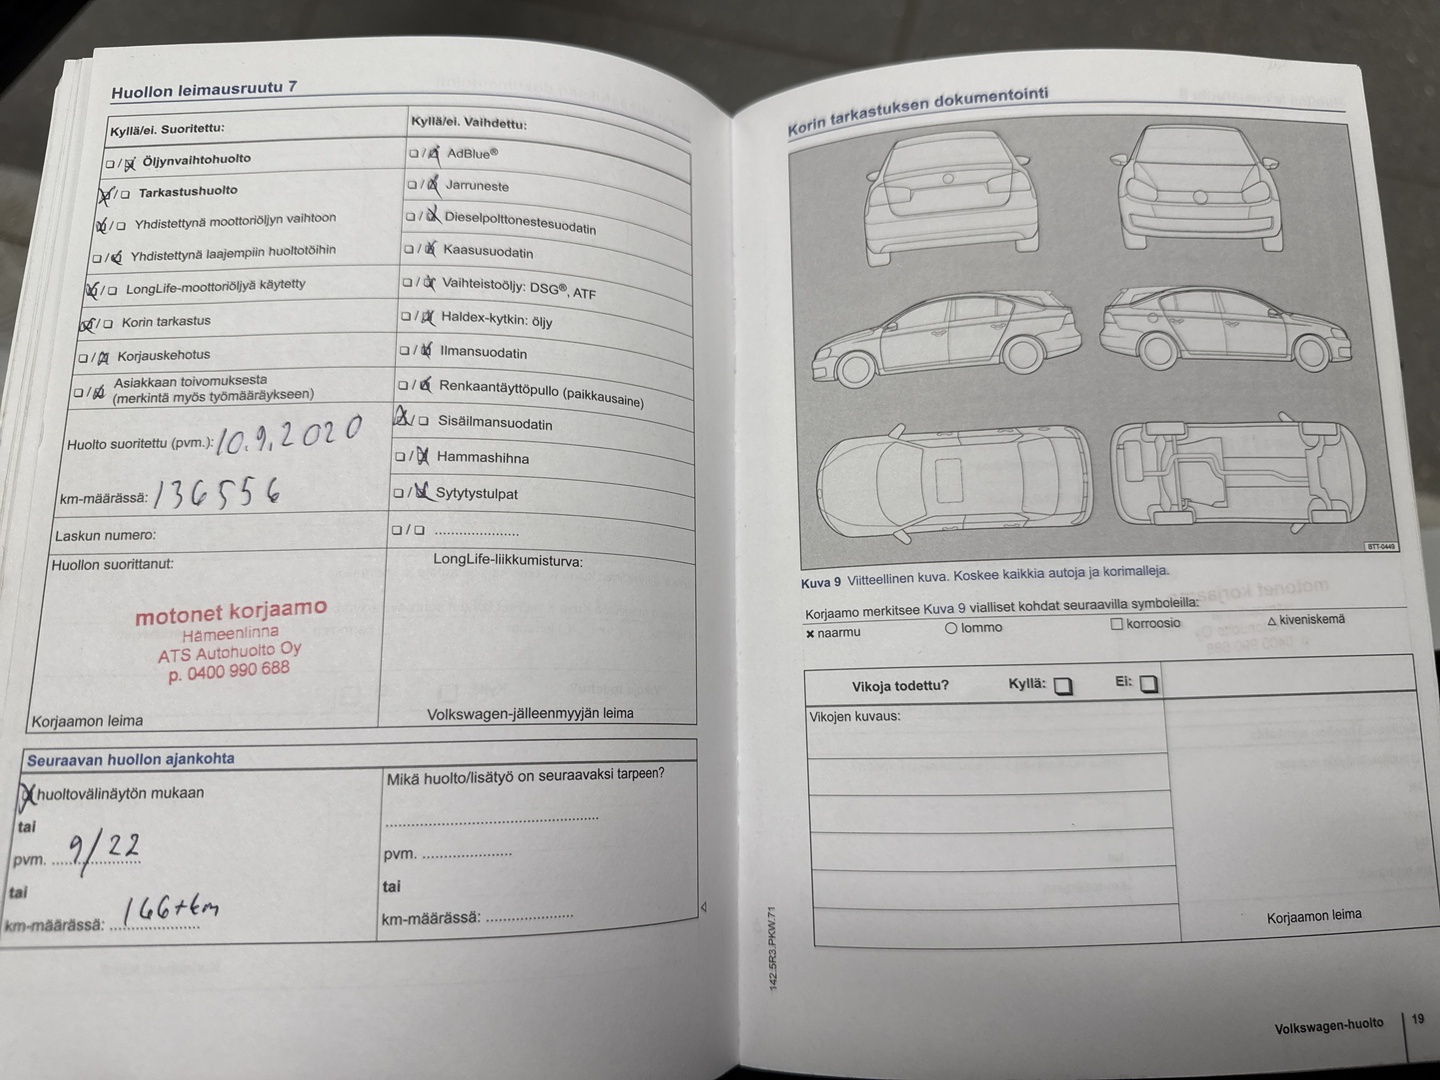 Huollon leimausruutu 7
Kyllä/ei. Suoritettu:
Öljynvaihtohuolto
Tarkastushuolto
Yhdistettynä moottoriöljyn vaihtoon
Yhdistettynä laajempiin huoltotöihin
LongLife-moottoriöljyä käytetty
Korin tarkastus
Korjauskehotus
Asiakkaan toivomuksesta
(merkintä myös työmääräykseen)
Huolto suoritettu (pvm.): 10.9.2020
km-määrässä: 136556
Laskun numero:
Huollon suorittanut:
motonet korjaamo
Hämeenlinna
ATS Autohuolto Oy
p. 0400 990 688
Korjaamon leima
Kyllä/ei. Vaihdettu:
AdBlue®
Jarruneste
Dieselpolttonestesuodatin
Kaasusuodatin
Vaihteistoöljy: DSG®, ATF
Haldex-kytkin: öljy
Ilmansuodatin
Renkaantäyttöpullo (paikkausaine)
Sisäilmansuodatin
Hammashihna
Sytytystulpat
LongLife-liikkumisturva:
Volkswagen-jälleenmyyjän leima
Seuraavan huollon ajankohta
huoltovälinäytön mukaan
tai
pvm. 9/22
tai
km-määrässä: 166tkm
Mikä huolto/lisätyö on seuraavaksi tarpeen?
pvm.
tai
km-määrässä:
Korin tarkastuksen dokumentointi
BTT-0449
Kuva 9 Viitteellinen kuva. Koskee kaikkia autoja ja korimalleja.
Korjaamo merkitsee Kuva 9 vialliset kohdat seuraavilla symboleilla:
× naarmu ○ lommo □ korroosio △ kiveniskemä
Vikoja todettu? Kyllä: Ei:
Vikojen kuvaus:
Korjaamon leima
142.5R3.PKW.71
Volkswagen-huolto 19